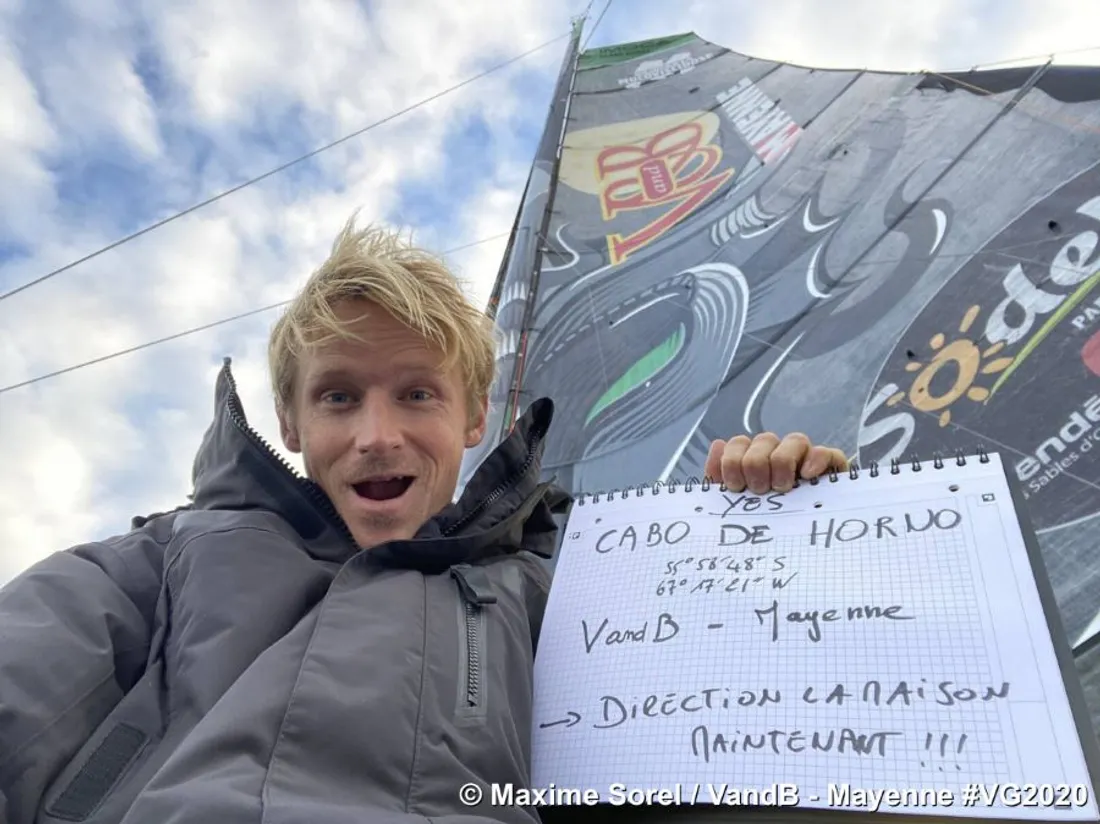 MAYENNE
VanD
and
B
Sodeb
PA
endé
Sables d'O
YES
CABO DE HORNO
55° 58' 48" S
67° 17' 21" W
VandB - Mayenne
→ DIRECTION LA MAISON
MAINTENANT !!!
© Maxime Sorel / VandB - Mayenne #VG2020